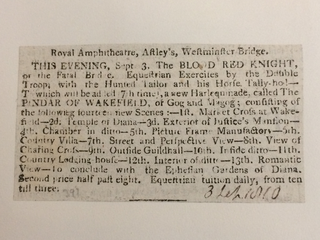 Royal Amphitheatre, Aſtley's, Weſtminſter Bridge.
THIS EVENING, Sept. 3. The BLOOD RED KNIGHT,
or the Fatal Bridge. Equeſtrian Exerciſes by the Double
Troop, with the Hunted Tailor and his Horſe Tally-ho!—
To which will be added 7th time), a new Harlequinade, called The
PINDAR OF WAKEFIELD, or Gog and Magog; conſiſting of
the following fourteen new Scenes:—1ſt. Market Croſs at Wake-
field—2d. Temple of Diana—3d. Exterior of Juſtice's Manſion—
4th. Chamber in ditto—5th. Picture Frame Manufactory—6th.
Country Villa—7th. Street and Perſpective View—8th. View of
Charing Croſs—9th. Outſide Guildhall—10th. Inſide ditto—11th.
Country Lodging houſe—12th. Interior of ditto—13th. Romantic
View—To conclude with the Epheſian Gardens of Diana.
Second price half paſt eight. Equeſtrian tuition daily, from ten
till three.
3 Sep 1810